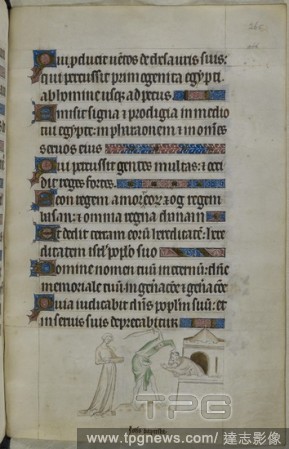 Qui producit ventos de thesauris suis:
qui percussit primogenita egypti
ab homine usq; ad pecus.
Emisit signa & prodigia in medio
tui egypte: in pharaonem & in omnes
seruos eius
Qui percussit gentes multas: & occi
dit reges fortes.
Seon regem amorreor & og regem
basan: & omnia regna chanaan
Et dedit terram eorum hereditatem: here
ditatem isrl' poplo suo
Domine nomen tuum in eternum: dne
memoriale tuum in generacione & generacionem
Quia iudicabit dns poplm suum: et
in seruis suis deprecabitur
TPG
www.tpgnews.com/達志影像